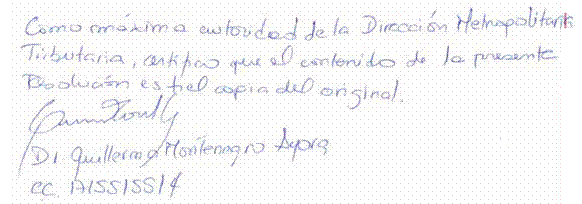 Como máxima autoridad de la Dirección Metropolitana
Tributaria, certifico que el contenido de la presente
Resolución es fiel copia del original.
Dr. Guillermo Montenegro Ayora
CC.